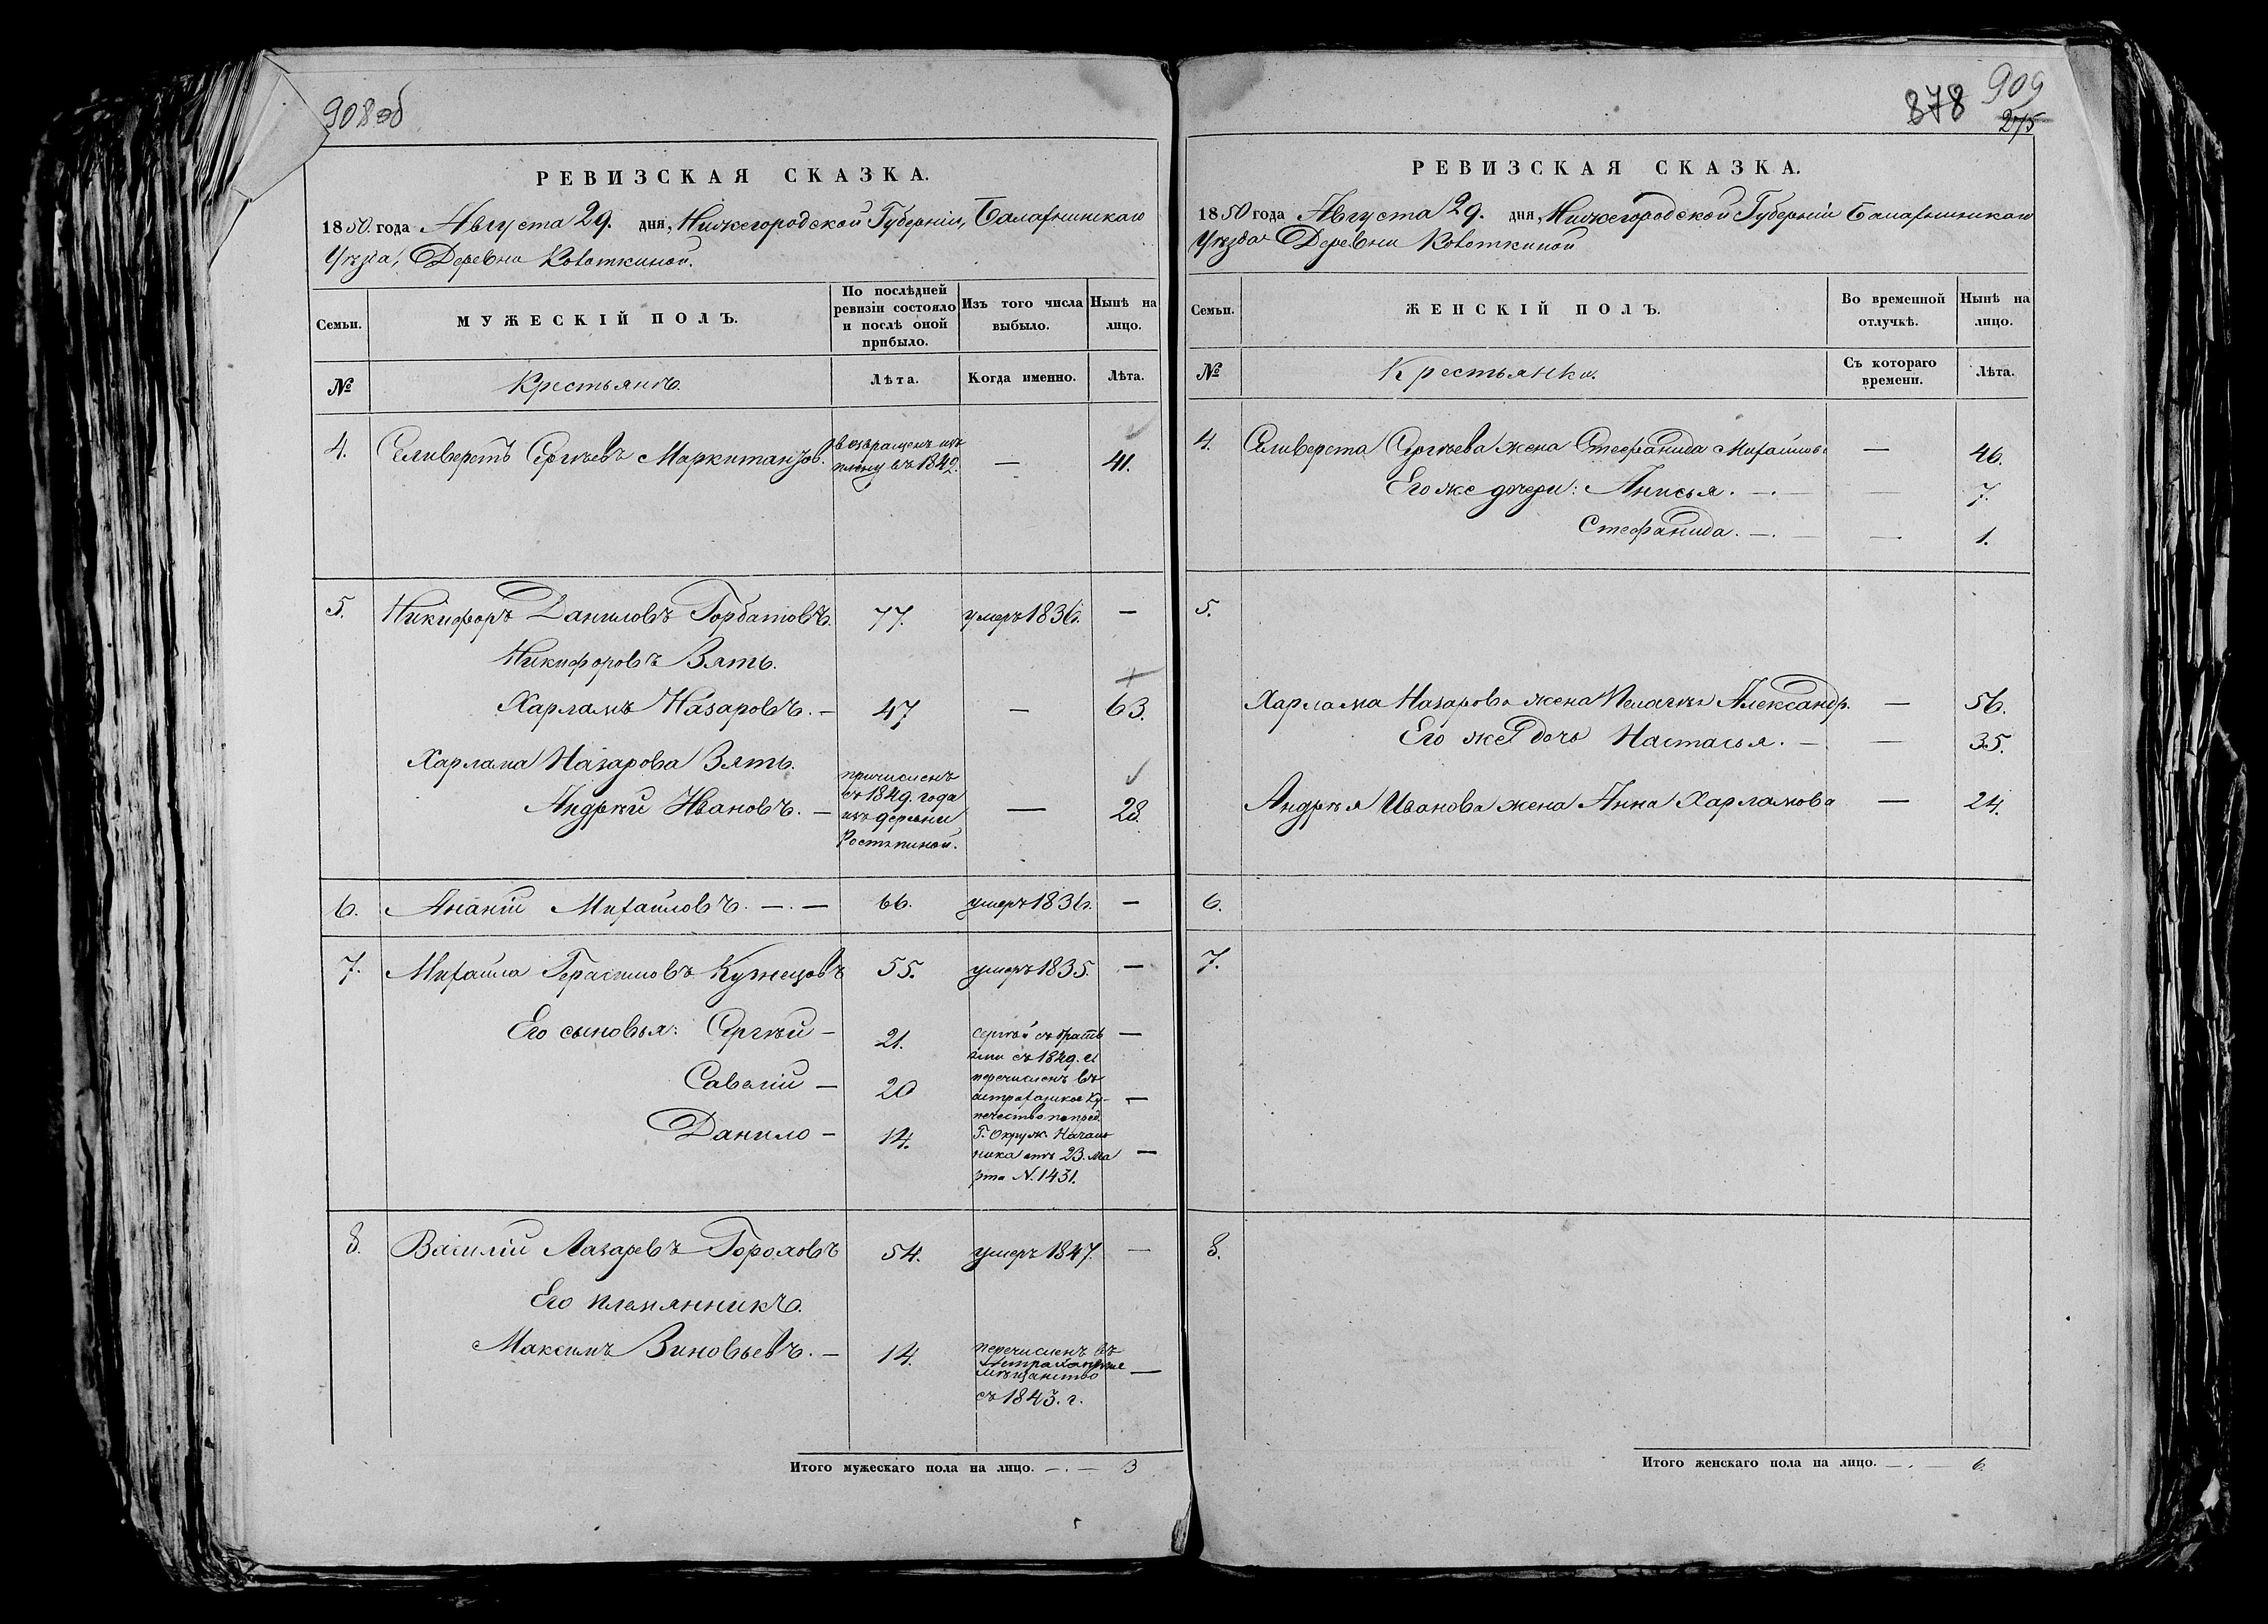 908об
РЕВИЗСКАЯ СКАЗКА.
1850 года Августа 29. дня, Нижегородской Губерніи, Балахнинскаго
Уѣзда, Деревни
Семьи.
МУЖЕСКІЙ ПОЛЪ.
По послѣдней ревизіи состояло и послѣ оной прибыло.
Изъ того числа выбыло.
Нынѣ на лицо.
№
Крестьянъ.
Лѣта.
Когда именно.
Лѣта.
4. Селиверстъ Сергѣевъ Маркитантовъ. возвращенъ изъ
плѣну въ 1842. — 41.
5. Никифоръ Даниловъ Горбатовъ. 77. умеръ 1836. —
Никифоровъ Зять.
Харламъ Назаровъ. — 47 — 63.
Харлама Назарова Зять.
Андрей Ивановъ. — причисленъ
съ 1849. года
изъ деревни
— 28.
6. Ананій Михайловъ. —.— 66. умеръ 1836. —
7. Михайла Герасимовъ Кузнецовъ 55. умеръ 1835. —
Его сыновья: Сергѣй — 21. Сергѣй съ брать
ями съ 1849. —
Савелій — 20 перечисленъ въ
астраханское ку-
печество по пред. —
Данило — 14. Г. Окруж. Началь
ника отъ 23. Ма
рта N. 1431. —
8. Василій Лазаревъ Гороховъ 54. умеръ 1847. —
Его племянникъ.
Максимъ Зиновьевъ. — 14. перечисленъ въ
Астраханское
мѣщанство
съ 1843. г. —
Итого мужескаго пола на лицо. —.— 3
909
878
275
РЕВИЗСКАЯ СКАЗКА.
1850 года Августа 29. дня, Нижегородской Губерніи Балахнинскаго
Уѣзда Деревни
Семьи.
ЖЕНСКІЙ ПОЛЪ.
Во временной отлучкѣ.
Нынѣ на лицо.
№
Крестьянки.
Съ котораго времени.
Лѣта.
4. Селиверста Сергѣева жена Стефанида Михайлов. — 46.
Его же дочери: Анисья. —.— — 7.
Стефанида. —.— — 1.
5.
Харлама Назарова жена Пелагѣя Александр. — 56.
Его же дочь Настасья. — — 35.
Андрѣя Иванова жена Анна Харламова — 24.
6.
7.
8.
Итого женскаго пола на лицо. —.— 6.